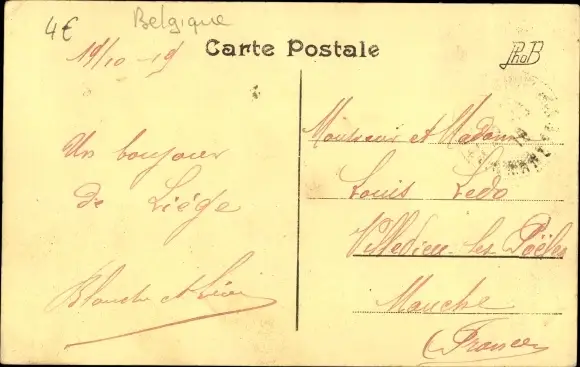 4€ Belgique
19/10-19
Carte Postale
PhoB
Un bonjour
de Liége
Blanche et Léon
Monsieur et Madame
Louis Ledo
Villedieu-les-Poëles
Manche
(France)